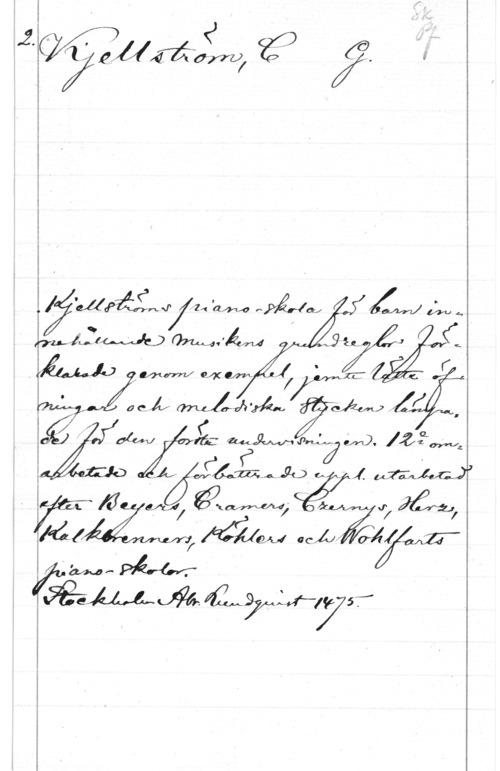 Sk
Pf
2. Kjellström, C G.
Kjellströms piano-skola för barn in-
nehållande musikens grundreglor för-
klarade genom exempel, jemte lätta öf-
ningar och melodiska stycken lämpa-
de för den första undervisningen. 12º om-
arbetade och förbättrade uppl. utarbetad
efter Beyers, Cramers, Czernys, Herz,
Kalkbrenners, Köhlers och Wohlfarts
piano-skolor.
Stockholm Abr. Lundquist 1475.